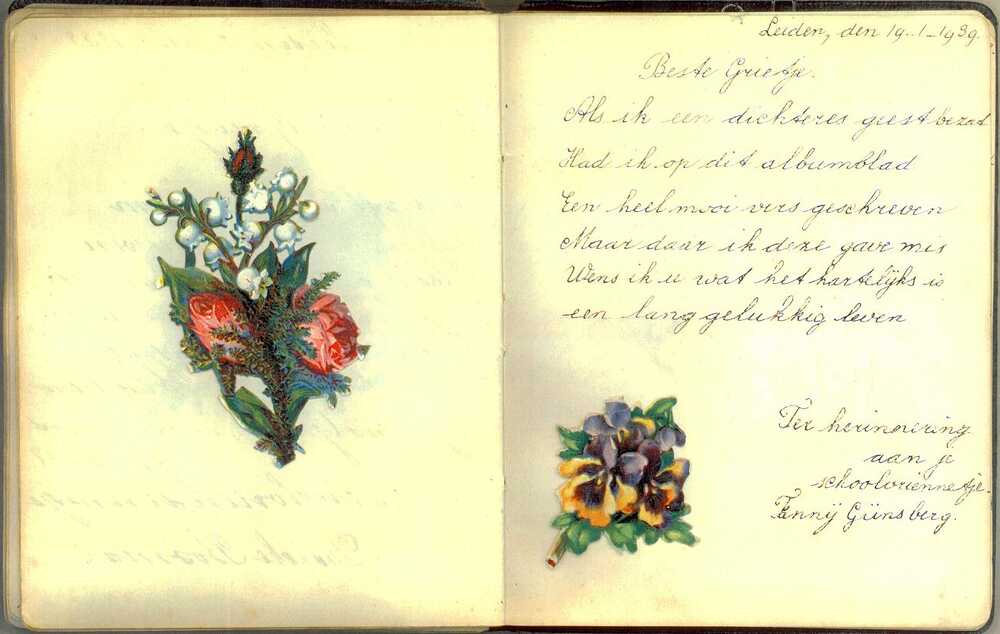 Leiden, den 19-1-1939.
Beste Grietje.
Als ik een dichteres geest bezat
Had ik op dit albumblad
Een heel mooi vers geschreven
Maar daar ik deze gave mis
Wens ik u wat het hartelijks is
een lang gelukkig leven
Ter herinnering
aan je
schoolvriennetje.
Fannÿ Günsberg.